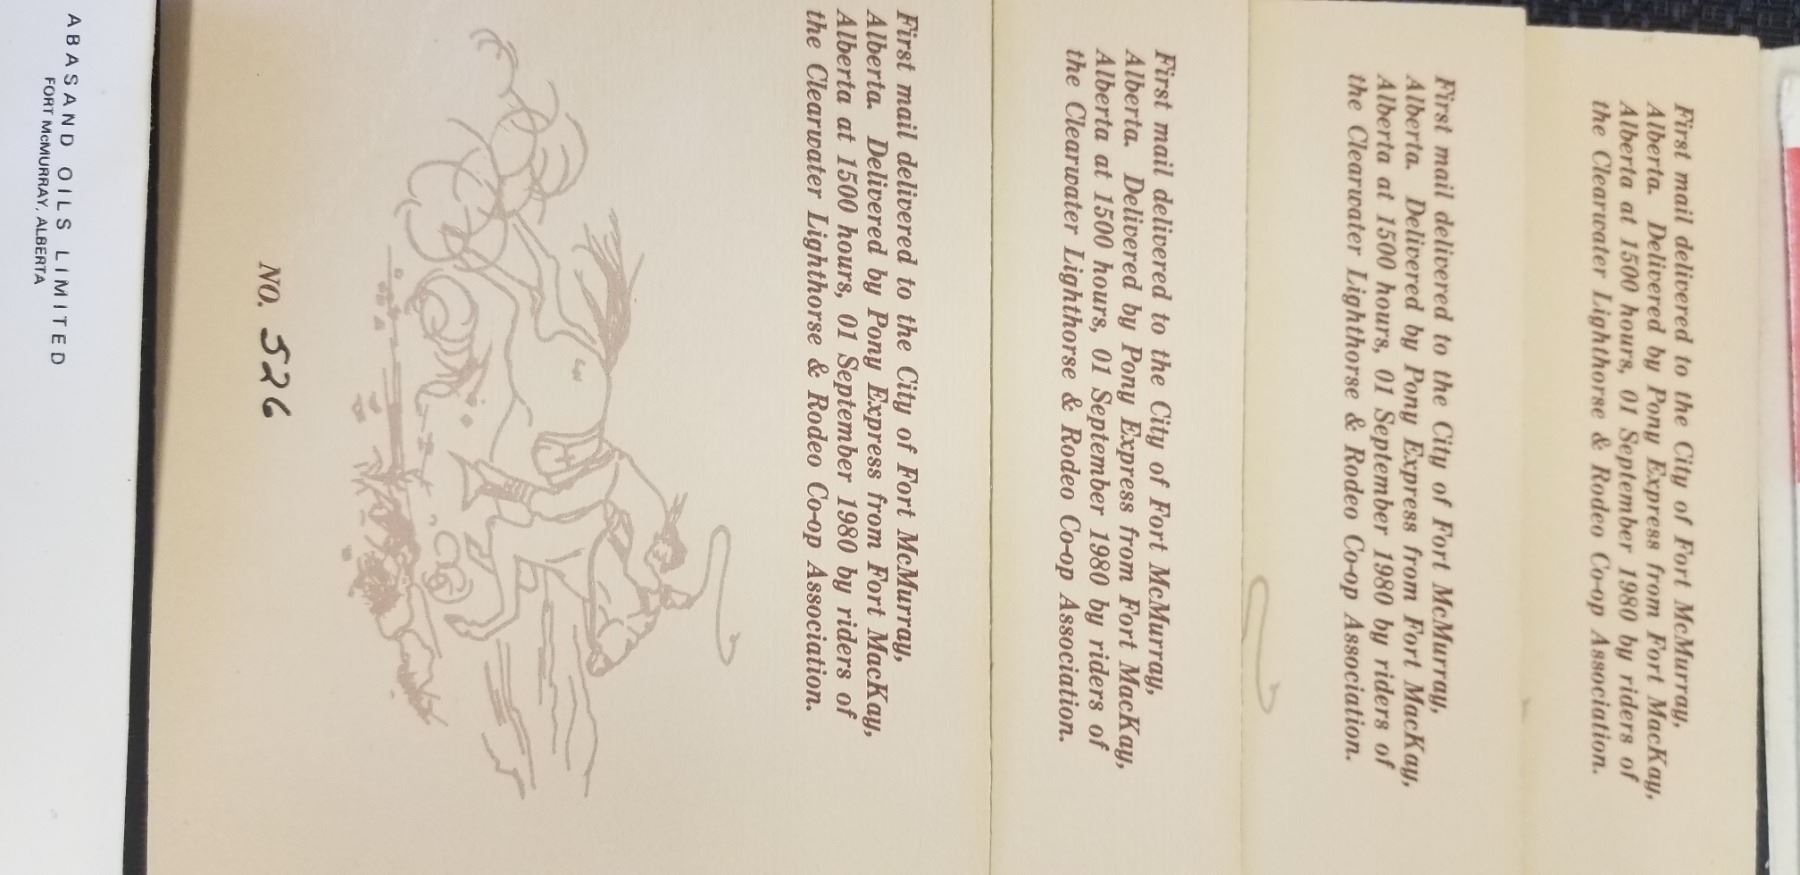 First mail delivered to the City of Fort McMurray,
Alberta. Delivered by Pony Express from Fort MacKay,
Alberta at 1500 hours, 01 September 1980 by riders of
the Clearwater Lighthorse & Rodeo Co-op Association.
First mail delivered to the City of Fort McMurray,
Alberta. Delivered by Pony Express from Fort MacKay,
Alberta at 1500 hours, 01 September 1980 by riders of
the Clearwater Lighthorse & Rodeo Co-op Association.
First mail delivered to the City of Fort McMurray,
Alberta. Delivered by Pony Express from Fort MacKay,
Alberta at 1500 hours, 01 September 1980 by riders of
the Clearwater Lighthorse & Rodeo Co-op Association.
First mail delivered to the City of Fort McMurray,
Alberta. Delivered by Pony Express from Fort MacKay,
Alberta at 1500 hours, 01 September 1980 by riders of
the Clearwater Lighthorse & Rodeo Co-op Association.
NO. 526
ABASAND OILS LIMITED
FORT McMURRAY, ALBERTA